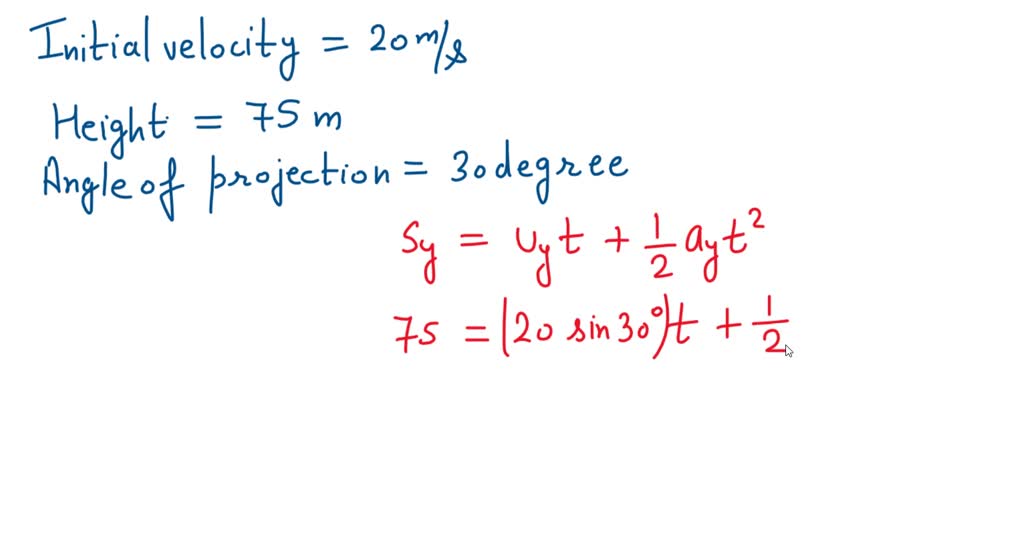 Initial velocity = 20 m/s
Height = 75 m
Angle of projection = 30 degree
Sy = Uyt + 1/2 ayt²
75 = (20 sin30°)t + 1/2